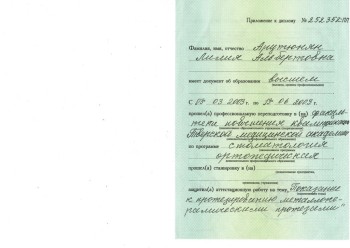 Приложение к диплому № 252352 ПП
Фамилия, имя, отчество Арутюнян
Лилия Альбертовна
имеет документ об образовании высшем
С 09.03.2003г. по 19.06.2003г.
прошел(а) профессиональную переподготовку в (на) факуль-
тети повышения квалификации
Тверской медицинской академии
по программе стоматология
ортопедическая
прошел(а) стажировку в (на)
защитил(а) аттестационную работу на тему „Показание
к протезированию металлоке-
рамическими протезами"